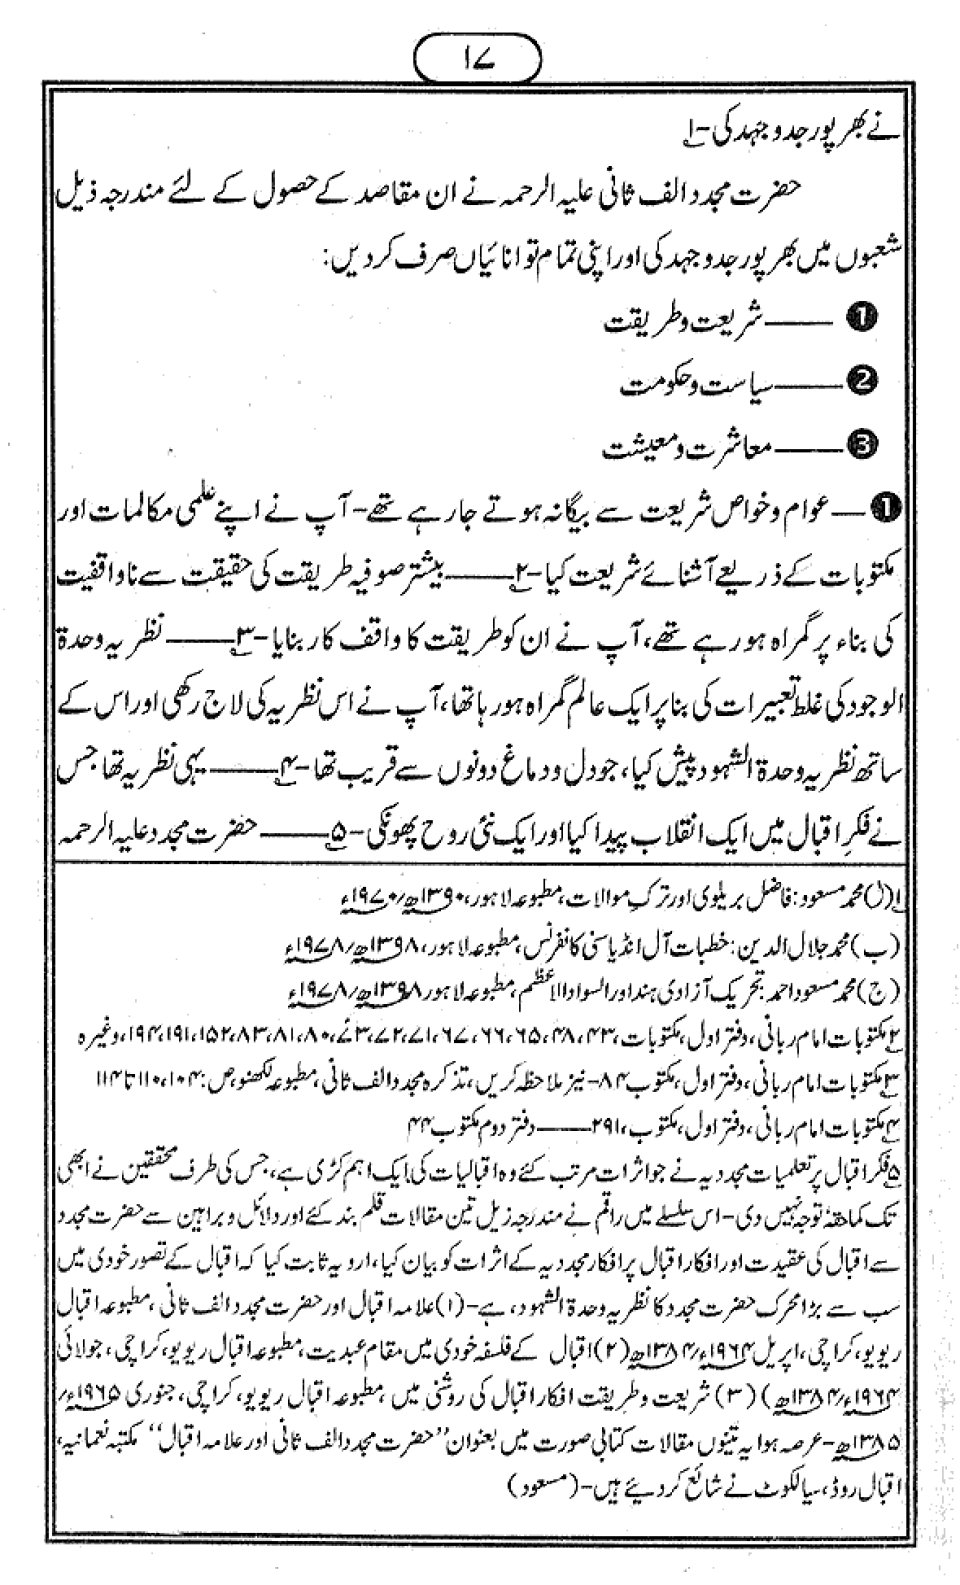 ۱۷
نے بھرپور جدوجہد کی-۱
حضرت مجدد الف ثانی علیہ الرحمہ نے ان مقاصد کے حصول کے لئے مندرجہ ذیل
شعبوں میں بھرپور جدوجہد کی اور اپنی تمام توانائیاں صرف کردیں:
❶ ——شریعت و طریقت
❷ ——سیاست و حکومت
❸ ——معاشرت و معیشت
❶ —عوام و خواص شریعت سے بیگانہ ہوتے جارہے تھے- آپ نے اپنے علمی مکالمات اور
مکتوبات کے ذریعے آشنائے شریعت کیا-۲—— بیشتر صوفیہ طریقت کی حقیقت سے ناواقفیت
کی بناء پر گمراہ ہورہے تھے، آپ نے ان کو طریقت کا واقف کار بنایا-۳—— نظریہ وحدۃ
الوجود کی غلط تعبیرات کی بناپر ایک عالم گمراہ ہورہا تھا، آپ نے اس نظریہ کی لاج رکھی اور اس کے
ساتھ نظریہ وحدۃ الشہود پیش کیا، جو دل و دماغ دونوں سے قریب تھا-۴—— یہی نظریہ تھا جس
نے فکرِ اقبال میں ایک انقلاب پیدا کیا اور ایک نئی روح پھونکی-۵—— حضرت مجدد علیہ الرحمہ
۱(ا) محمد مسعود: فاضل بریلوی اور ترکِ موالات، مطبوعہ لاہور، ۱۳۹۰ھ/۱۹۷۰ء
(ب) محمد جلال الدین: خطبات آل انڈیا سنی کانفرنس، مطبوعہ لاہور، ۱۳۹۸ھ/۱۹۷۸ء
(ج) محمد مسعود احمد: تحریک آزادی ہند اور السواد الاعظم، مطبوعہ لاہور ۱۳۹۸ھ/۱۹۷۸ء
۲ مکتوبات امام ربانی، دفتر اول، مکتوبات، ۴۳، ۴۸، ۶۵، ۶۶، ۶۷، ۷۱، ۷۲، ۷۳، ۸۰، ۸۱، ۸۳، ۱۵۲، ۱۹۱، ۱۹۴، وغیرہ
۳ مکتوبات امام ربانی، دفتر اول، مکتوب ۸۴- نیز ملاحظہ کریں، تذکرہ مجدد الف ثانی، مطبوعہ لکھنو، ص: ۱۰۴، ۱۱۰ تا ۱۱۴
۴ مکتوبات امام ربانی، دفتر اول، مکتوب، ۲۹۱—— دفتر دوم مکتوب ۴۴
۵ فکر اقبال پر تعلیمات مجددیہ نے جو اثرات مرتب کئے وہ اقبالیات کی ایک اہم کڑی ہے، جس کی طرف محققین نے ابھی
تک کماحقہٗ توجہ نہیں دی- اس سلسلے میں راقم نے مندرجہ زیل تین مقالات قلم بند کئے اور دلائل و براہین سے حضرت مجدد
سے اقبال کی عقیدت اور افکار اقبال پر افکار مجددیہ کے اثرات کو بیان کیا، ارو یہ ثابت کیا کہ اقبال کے تصور خودی میں
سب سے بڑا محرک حضرت مجدد کا نظریہ وحدۃ الشہود، ہے- (۱) علامہ اقبال اور حضرت مجدد الف ثانی، مطبوعہ اقبال
ریویو، کراچی، اپریل ۱۹۶۴ء/۱۳۸۴ھ (۲) اقبال کے فلسفہ خودی میں مقام عبدیت، مطبوعہ اقبال ریویو، کراچی، جولائی
۱۹۶۴ء/۱۳۸۴ھ) (۳) شریعت و طریقت افکار اقبال کی روشنی میں، مطبوعہ اقبال ریویو، کراچی، جنوری ۱۹۶۵ء/
۱۳۸۵ھ- عرصہ ہوا یہ تینوں مقالات کتابی صورت میں بعنوان "حضرت مجدد الف ثانی اور علامہ اقبال" مکتبہ نعمانیہ،
اقبال روڈ، سیالکوٹ نے شائع کردیئے ہیں- (مسعود)